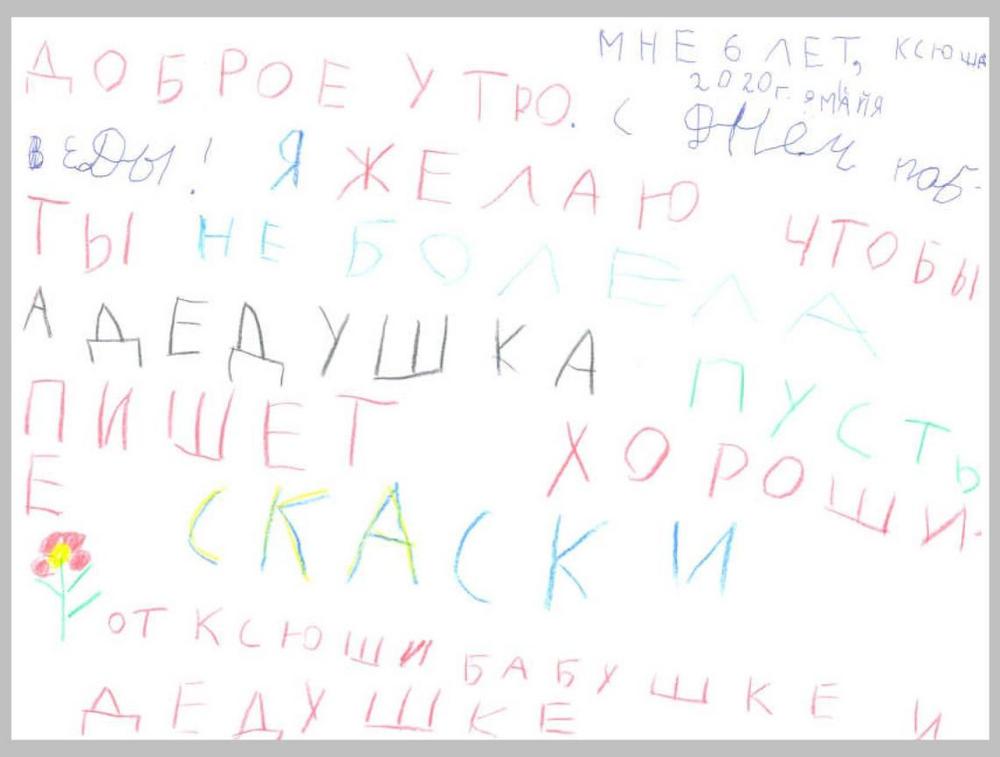 МНЕ 6 ЛЕТ, КСЮША
2020г. 9 МАЙЯ
ДОБРОЕ УТРО. С ДНём ПОБ-
ВЕДЫ! Я ЖЕЛАЮ ЧТОБЫ
ТЫ НЕ БОЛЕЛА
А ДЕДУШКА ПУСТЬ
ПИШЕТ ХОРОШИ-
Е СКАСКИ
ОТ КСЮШИ БАБУШКЕ И
ДЕДУШКЕ